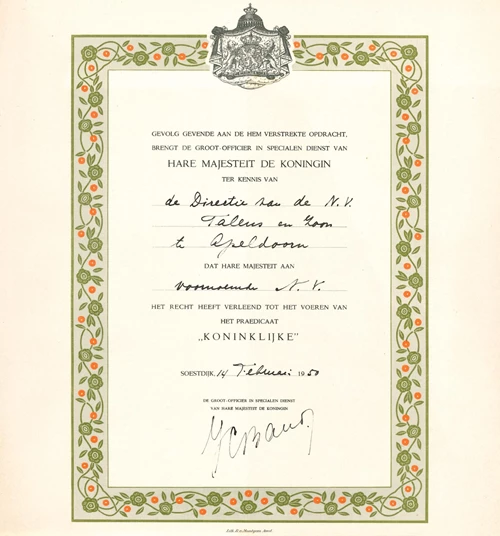 GEVOLG GEVENDE AAN DE HEM VERSTREKTE OPDRACHT,
BRENGT DE GROOT-OFFICIER IN SPECIALEN DIENST VAN
HARE MAJESTEIT DE KONINGIN
TER KENNIS VAN
de Directie van de N.V.
Talens en Zoon
te Apeldoorn
DAT HARE MAJESTEIT AAN
voornoemde N.V.
HET RECHT HEEFT VERLEEND TOT HET VOEREN VAN
HET PRAEDICAAT
„KONINKLIJKE"
SOESTDIJK, 14 Februari 1950
DE GROOT-OFFICIER IN SPECIALEN DIENST
VAN HARE MAJESTEIT DE KONINGIN